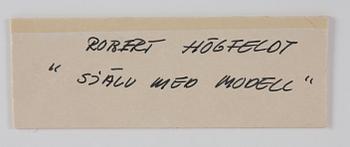 ROBERT HÖGFELDT
"SJÄLV MED MODELL"